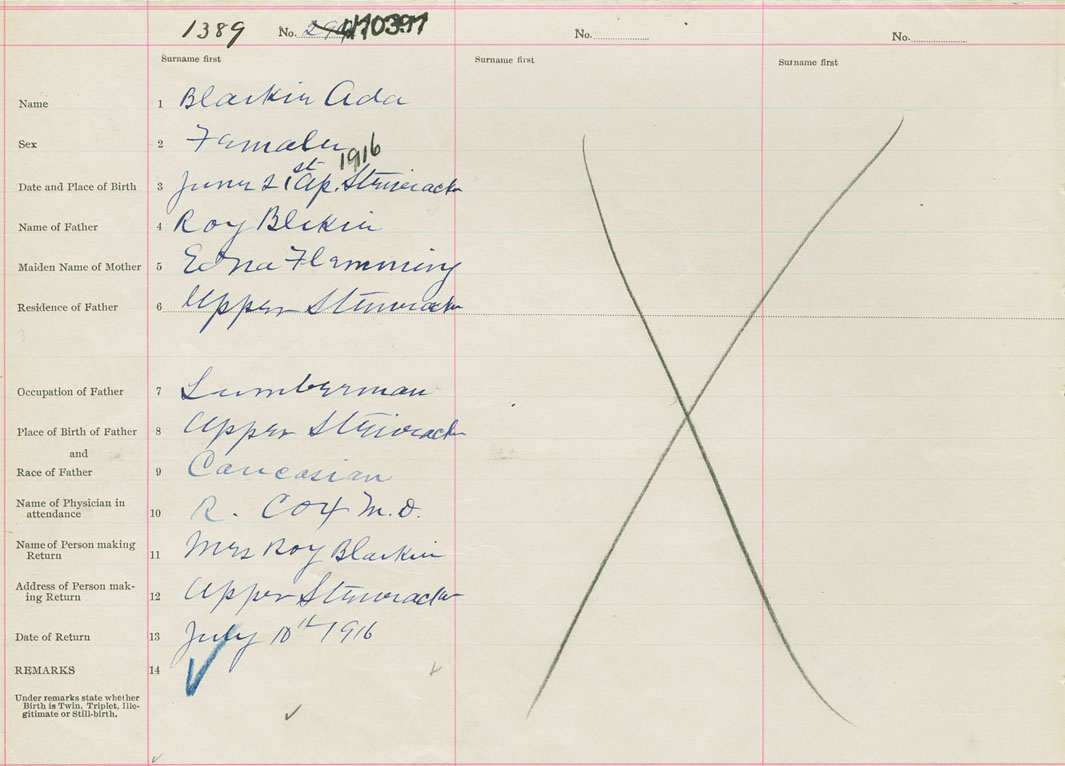 1389 No. 470397 No. No.
Surname first Surname first Surname first
Name 1 Blaikie Ada
Sex 2 Female
1916
Date and Place of Birth 3 June 21st Up. Stewiacke
Name of Father 4 Roy Blekie
Maiden Name of Mother 5 Edna Flemming
Residence of Father 6 Upper Stewiacke
Occupation of Father 7 Lumberman
Place of Birth of Father 8 Upper Stewiacke
and
Race of Father 9 Caucasian
Name of Physician in
attendance 10 R. Cox M.D.
Name of Person making
Return 11 Mrs Roy Blaikie
Address of Person mak-
ing Return 12 Upper Stewiacke
Date of Return 13 July 10th 1916
REMARKS 14
Under remarks state whether
Birth is Twin, Triplet, Ille-
gitimate or Still-birth.